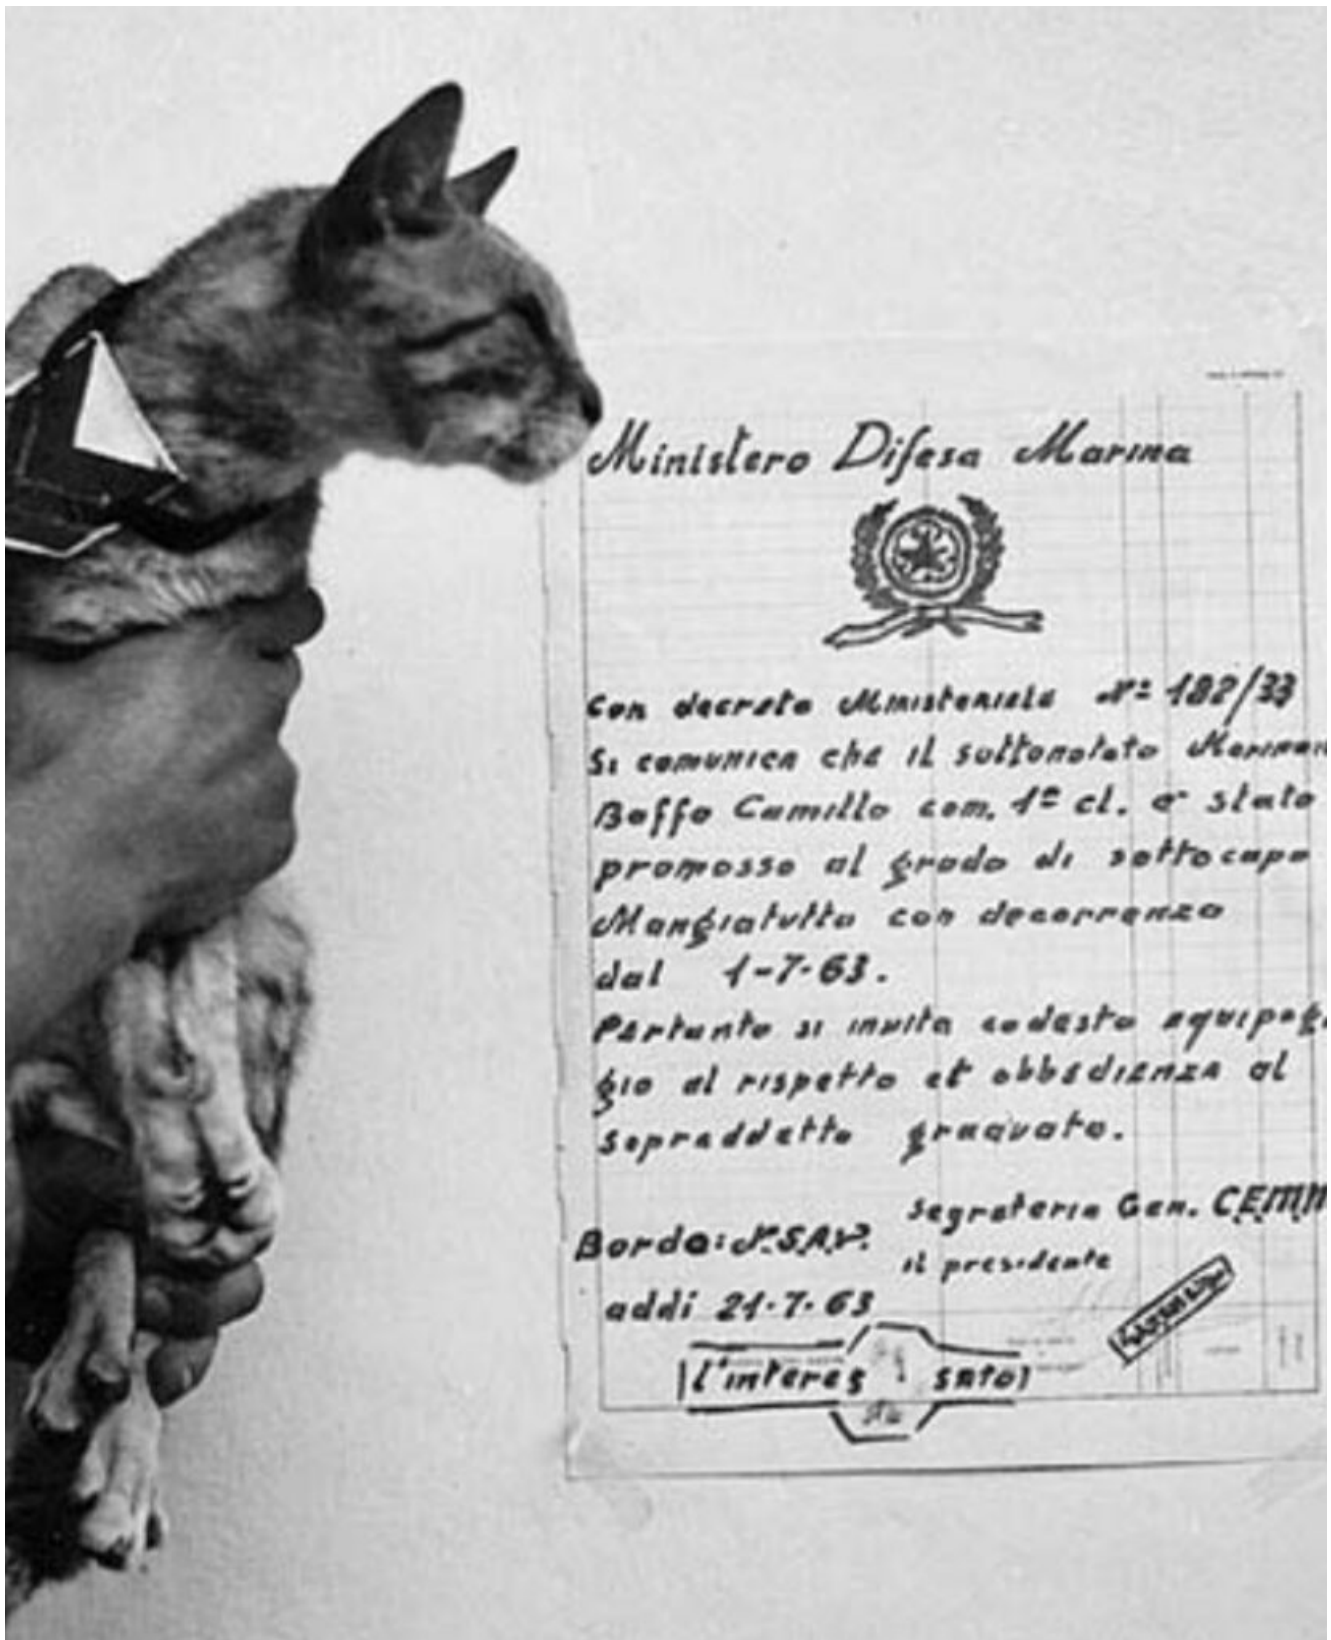 Ministero Difesa Marina
con decreto Ministeriale Nº 182/33
Si comunica che il sottonotato
Baffo Camillo com. 1ª cl. è stato
promosso al grado di sottocapo
Mangiatutto con decorrenza
dal 1-7-63.
Pertanto si invita codesto equipag
gio al rispetto et obbedienza al
sopraddetto graduato.
segreteria Gen. CEMM
Bordo: N.S.A.P.
il presidente
addi 21-7-63
l'interes sato